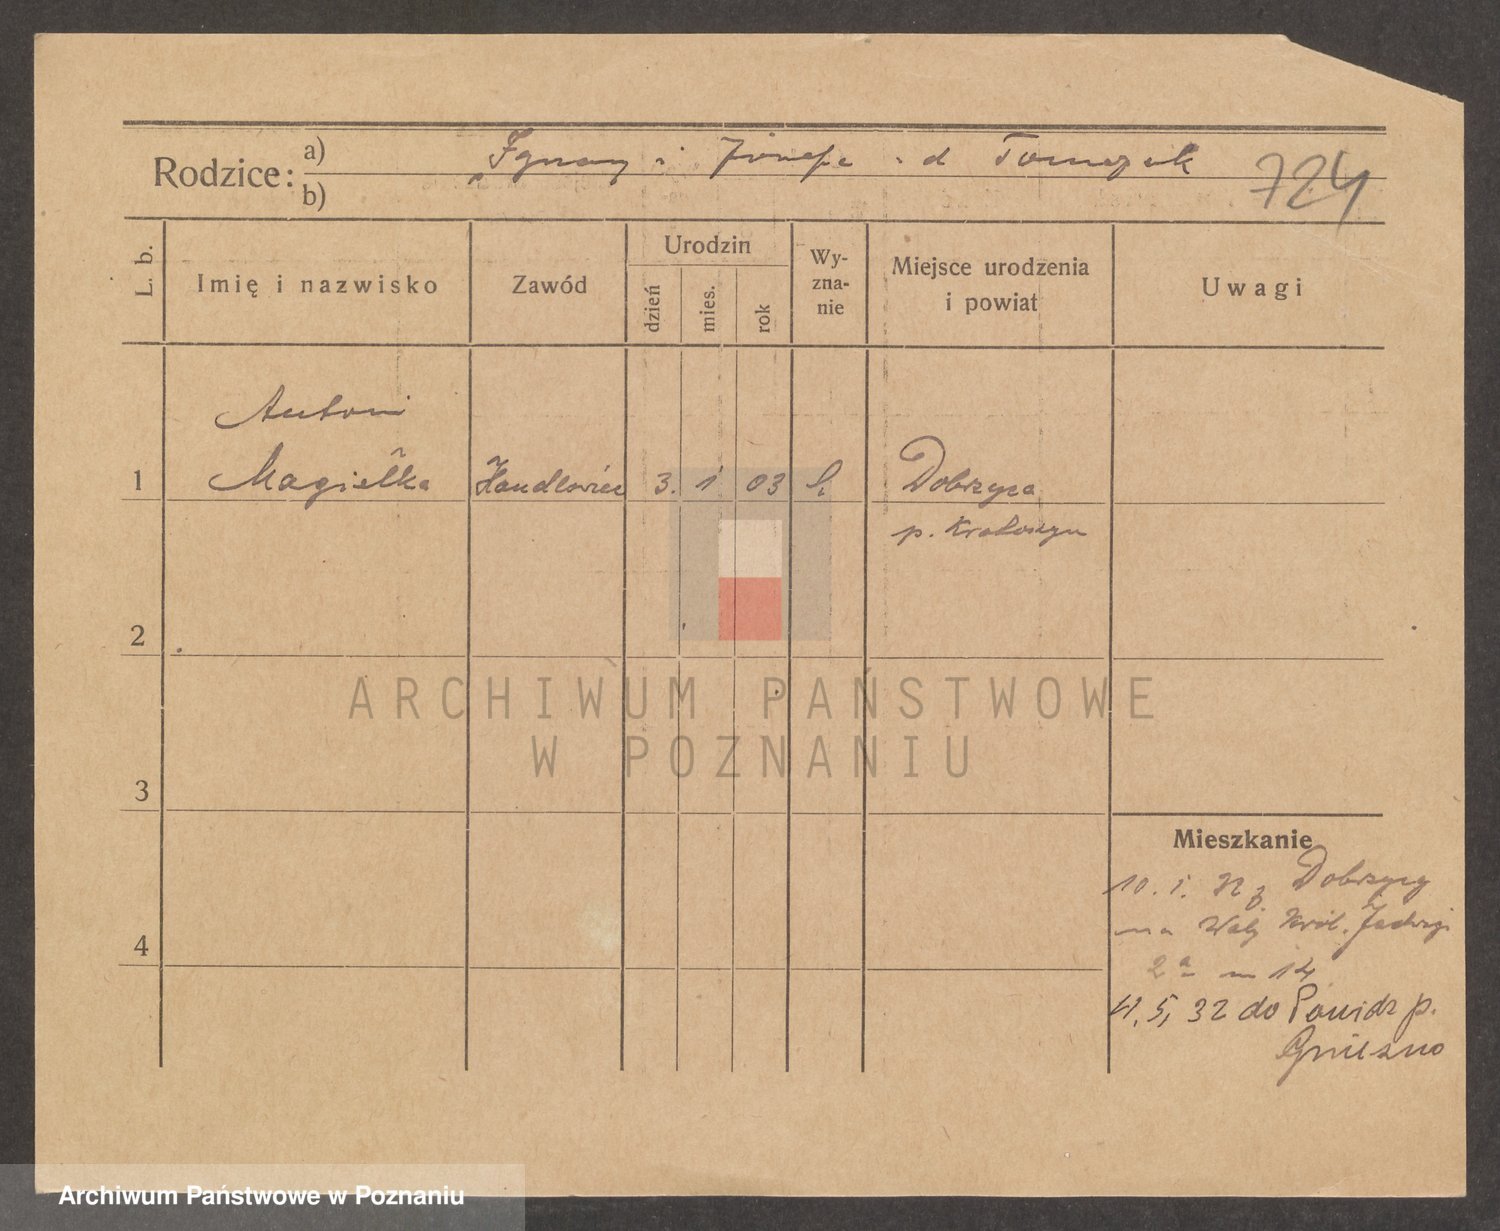 Rodzice: a) Ignacy i Józefa z d Tomczak
b)
724
L. b.
Imię i nazwisko
Zawód
Urodzin
dzień
mies.
rok
Wy-
zna-
nie
Miejsce urodzenia
i powiat
Uwagi
Antoni
1 Magiełka Handlowiec 3. 1 03 k. Dobrzyca
p. Krotoszyn
2
3
4
Mieszkanie
10. I. z Dobrzycy
na Wały Król. Jadwigi
2a m 14
5, 32 do Powidz p.
Gniezno
ARCHIWUM PAŃSTWOWE
W POZNANIU
Archiwum Państwowe w Poznaniu